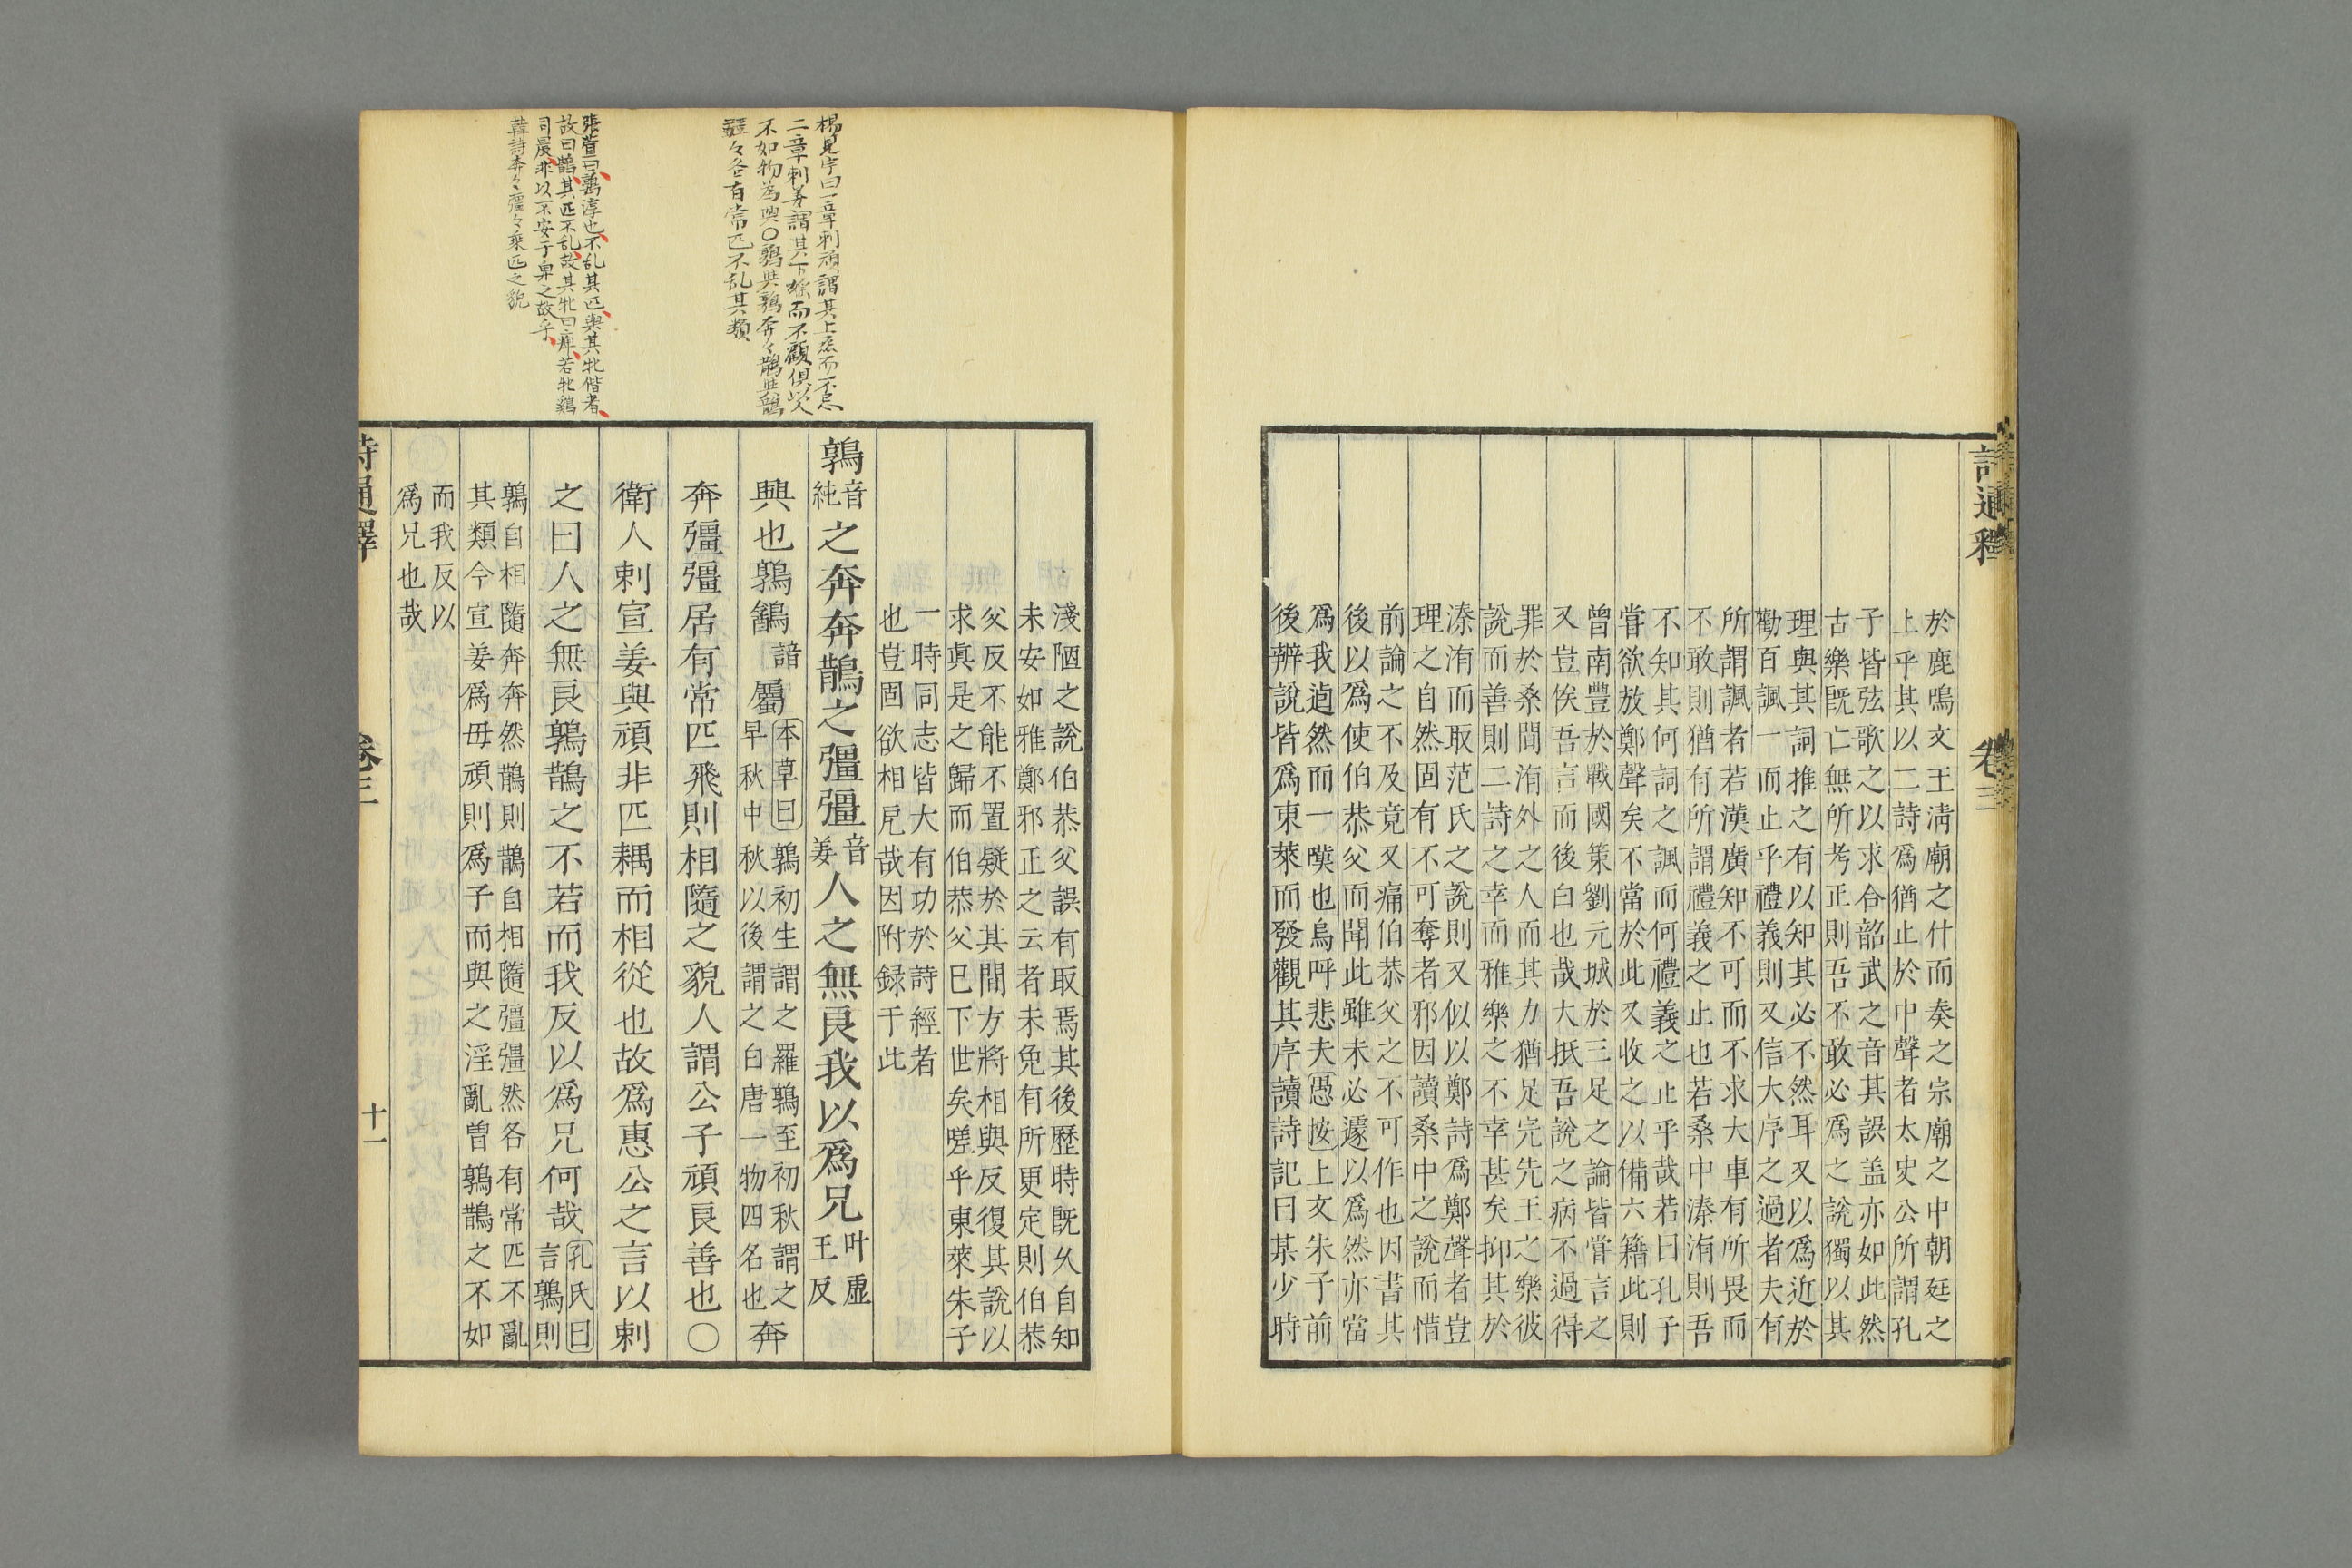 詩通釋
卷三
於鹿鳴文王淸廟之什而奏之宗廟之中朝廷之
上乎其以二詩爲猶止於中聲者太史公所謂孔
子皆弦歌之以求合韶武之音其誤盖亦如此然
古樂旣亡無所考正則吾不敢必爲之說獨以其
理與其詞推之有以知其必不然耳又以爲近於
勸百諷一而止乎禮義則又信大序之過者夫有
所謂諷者若漢廣知不可而不求大車有所畏而
不敢則猶有所謂禮義之止也若桑中溱洧則吾
不知其何詞之諷而何禮義之止乎哉若曰孔子
甞欲放鄭聲矣不當於此又收之以備六籍此則
曾南豐於戰國策劉元城於三足之論皆甞言之
又豈俟吾言而後白也哉大抵吾說之病不過得
罪於桑間洧外之人而其力猶足完先王之樂彼
說而善則二詩之幸而雅樂之不幸甚矣抑其於
溱洧而取范氏之說則又似以鄭詩爲鄭聲者豈
理之自然固有不可奪者邪因讀桑中之說而惜
前論之不及竟又痛伯恭父之不可作也因書其
後以爲使伯恭父而聞此雖未必遽以爲然亦當
爲我逌然而一嘆也烏呼悲夫愚按上文朱子前
後辨說皆爲東萊而發觀其序讀詩記曰某少時
淺陋之說伯恭父誤有取焉其後歷時旣久自知
未安如雅鄭邪正之云者未免有所更定則伯恭
父反不能不置疑於其間方將相與反復其說以
求眞是之歸而伯恭父已下世矣嗟乎東萊朱子
一時同志皆大有功於詩經者
也豈固欲相戹哉因附録于此
鶉音純之奔奔鵲之彊彊音姜人之無良我以爲兄叶虛王反
興也鶉鵪諳屬本草曰鶉初生謂之羅鶉至初秋謂之
早秋中秋以後謂之白唐一物四名也奔
奔彊彊居有常匹飛則相隨之貌人謂公子頑良善也〇
衛人刺宣姜與頑非匹耦而相從也故爲惠公之言以刺
之曰人之無良鶉鵲之不若而我反以爲兄何哉孔氏曰
言鶉則
鶉自相隨奔奔然鵲則鵲自相隨彊彊然各有常匹不亂
其類今宣姜爲母頑則爲子而與之淫亂曽鶉鵲之不如
而我反以
爲兄也哉
詩通釋
卷三
十一
楊見宇曰一章刺頑謂其上烝而不忌
二章刺姜謂其下媱而不顧俱以人
不如物為興〇鶉與鶉奔々鵲與鵲
彊々各有常匹不乱其類
張萱曰鶉淳也不乱其匹與其牝偕者
故曰鶉其匹不乱故其牝曰庳若牝鷄
司晨非以不安于卑之故乎
韓詩奔々彊々乗匹之貌